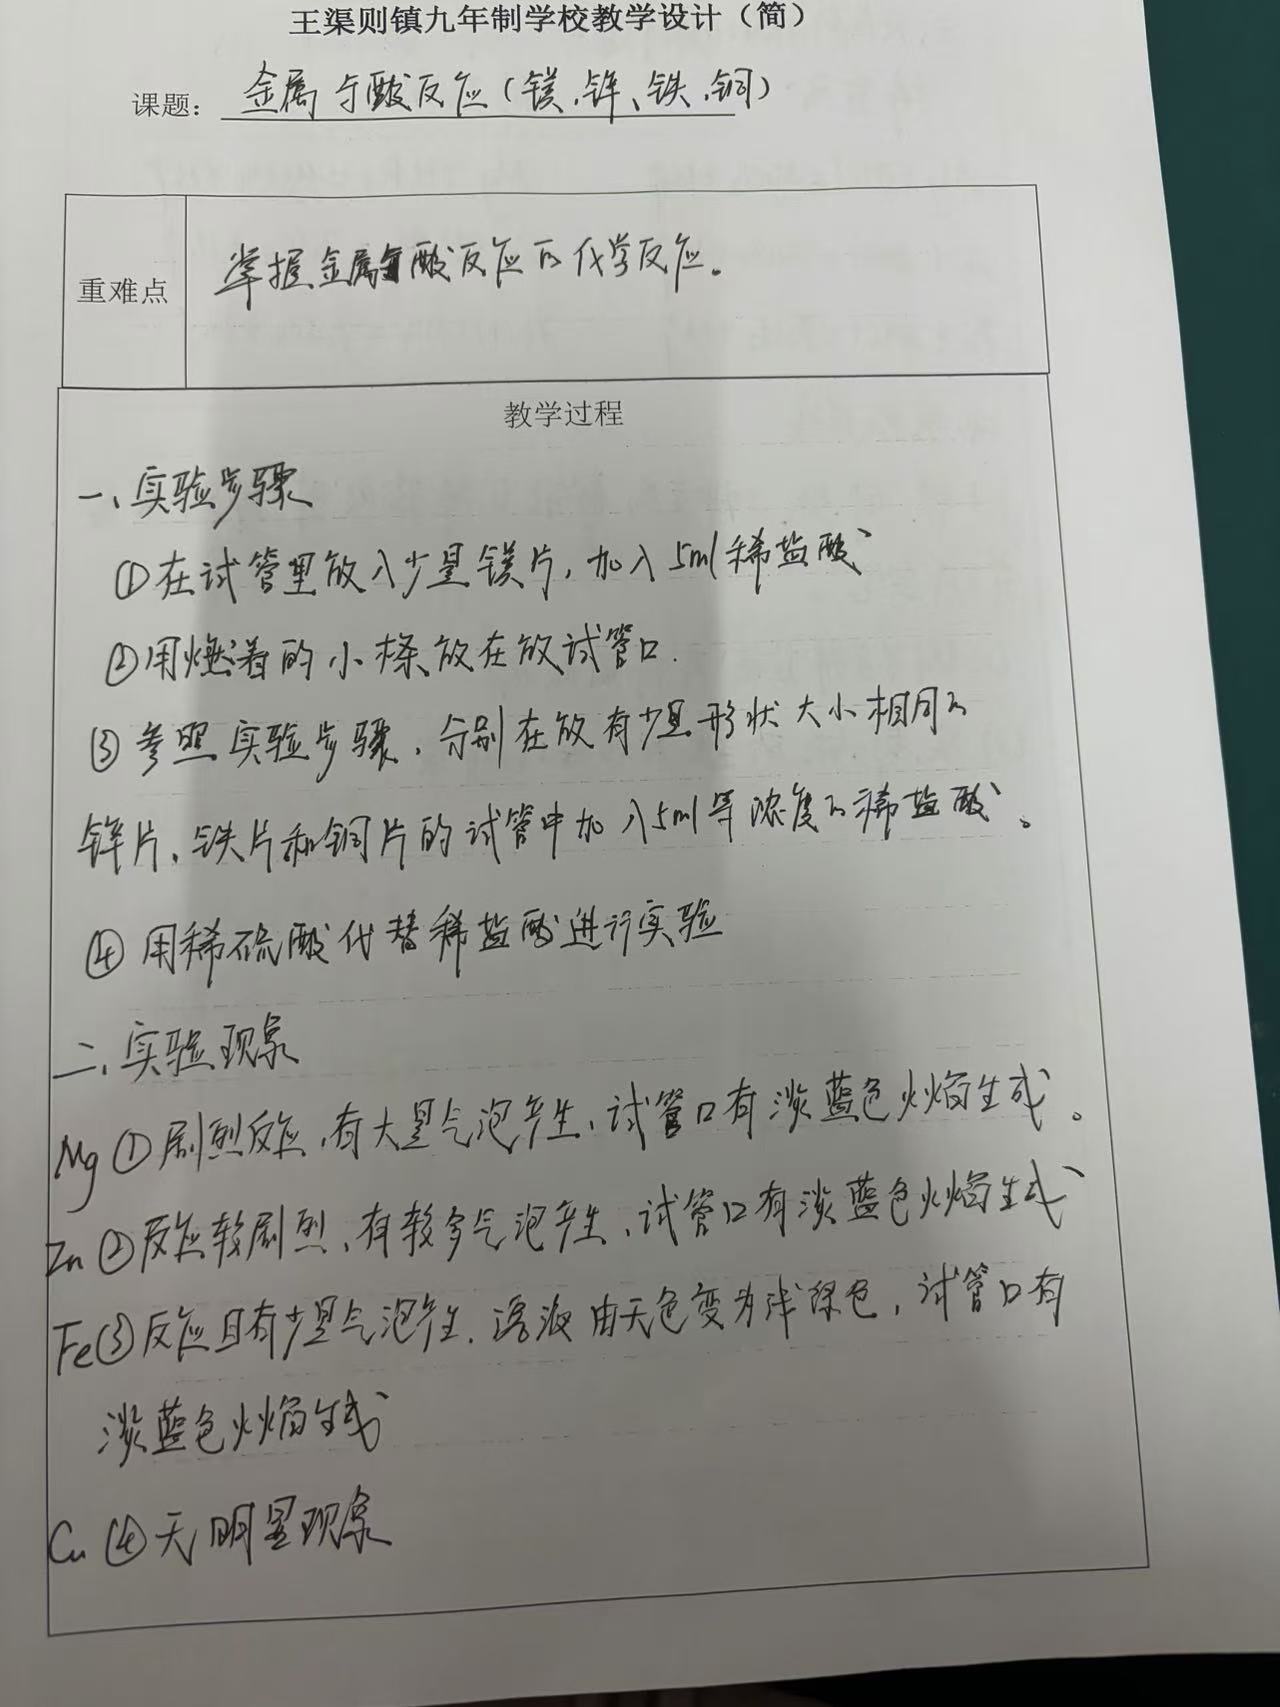 王渠则镇九年制学校教学设计（简）
课题：金属与酸反应（镁、锌、铁、铜）
重难点
掌握金属与酸反应的化学反应。
教学过程
一、实验步骤
①在试管里放入少量镁片，加入5ml稀盐酸
②用燃着的小木条放在放试管口.
③参照实验步骤，分别在放有少量形状大小相同的
锌片、铁片和铜片的试管中加入5ml等浓度的稀盐酸。
④用稀硫酸代替稀盐酸进行实验
二、实验现象
Mg ①剧烈反应，有大量气泡产生，试管口有淡蓝色火焰生成。
Zn ②反应较剧烈，有较多气泡产生，试管口有淡蓝色火焰生成
Fe ③反应且有少量气泡产生，溶液由无色变为浅绿色，试管口有
淡蓝色火焰生成
Cu ④无明显现象